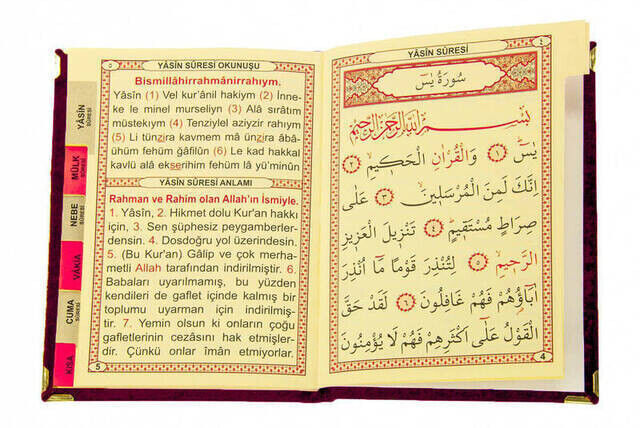 YÂSÎN
SÛRESİ
MÜLK
SÛRESİ
NEBE
SÛRESİ
VÂKIA
CUMA
SÛRESİ
KISA
٥
YÂSÎN SÛRESİ OKUNUŞU
Bismillâhirrahmânirrahıym.
Yâsîn (1) Vel kur'ânil hakiym (2) İnne-
ke le minel murseliyn (3) Alâ sırâtım
müstekıym (4) Tenziylel aziyzir rahıym
(5) Li tünzira kavmem mâ ünzira âbâ-
ühüm fehüm ğâfilûn (6) Le kad hakkal
kavlü alâ ekserihim fehüm lâ yü'minûn
YÂSÎN SÛRESİ ANLAMI
Rahman ve Rahîm olan Allah'ın İsmiyle.
1. Yâsîn, 2. Hikmet dolu Kur'an hakkı
için, 3. Sen şüphesiz peygamberler-
densin. 4. Dosdoğru yol üzerindesin.
5. (Bu Kur'an) Gâlip ve çok merha-
metli Allah tarafından indirilmiştir. 6.
Babaları uyarılmamış, bu yüzden
kendileri de gaflet içinde kalmış bir
toplumu uyarman için indirilmiş-
tir. 7. Yemin olsun ki onların çoğu
gafletlerinin cezasını hak etmişler-
dir. Çünkü onlar îmân etmiyorlar.
5
YÂSÎN SÛRESİ
٤
سُورَةُ يٰسٓ
بِسْمِ اللّٰهِ الرَّحْمٰنِ الرَّحِيمِ
يٰسٓ ﴿١﴾ وَالْقُرْاٰنِ الْحَكِيمِ ﴿٢﴾
اِنَّكَ لَمِنَ الْمُرْسَلِينَ ﴿٣﴾ عَلٰى
صِرَاطٍ مُسْتَقِيمٍ ﴿٤﴾ تَنْزِيلَ الْعَزِيزِ
الرَّحِيمِ ﴿٥﴾ لِتُنْذِرَ قَوْمًا مَٓا اُنْذِرَ
اٰبَٓاؤُهُمْ فَهُمْ غَافِلُونَ ﴿٦﴾ لَقَدْ حَقَّ
الْقَوْلُ عَلٰٓى اَكْثَرِهِمْ فَهُمْ لَا يُؤْمِنُونَ
4